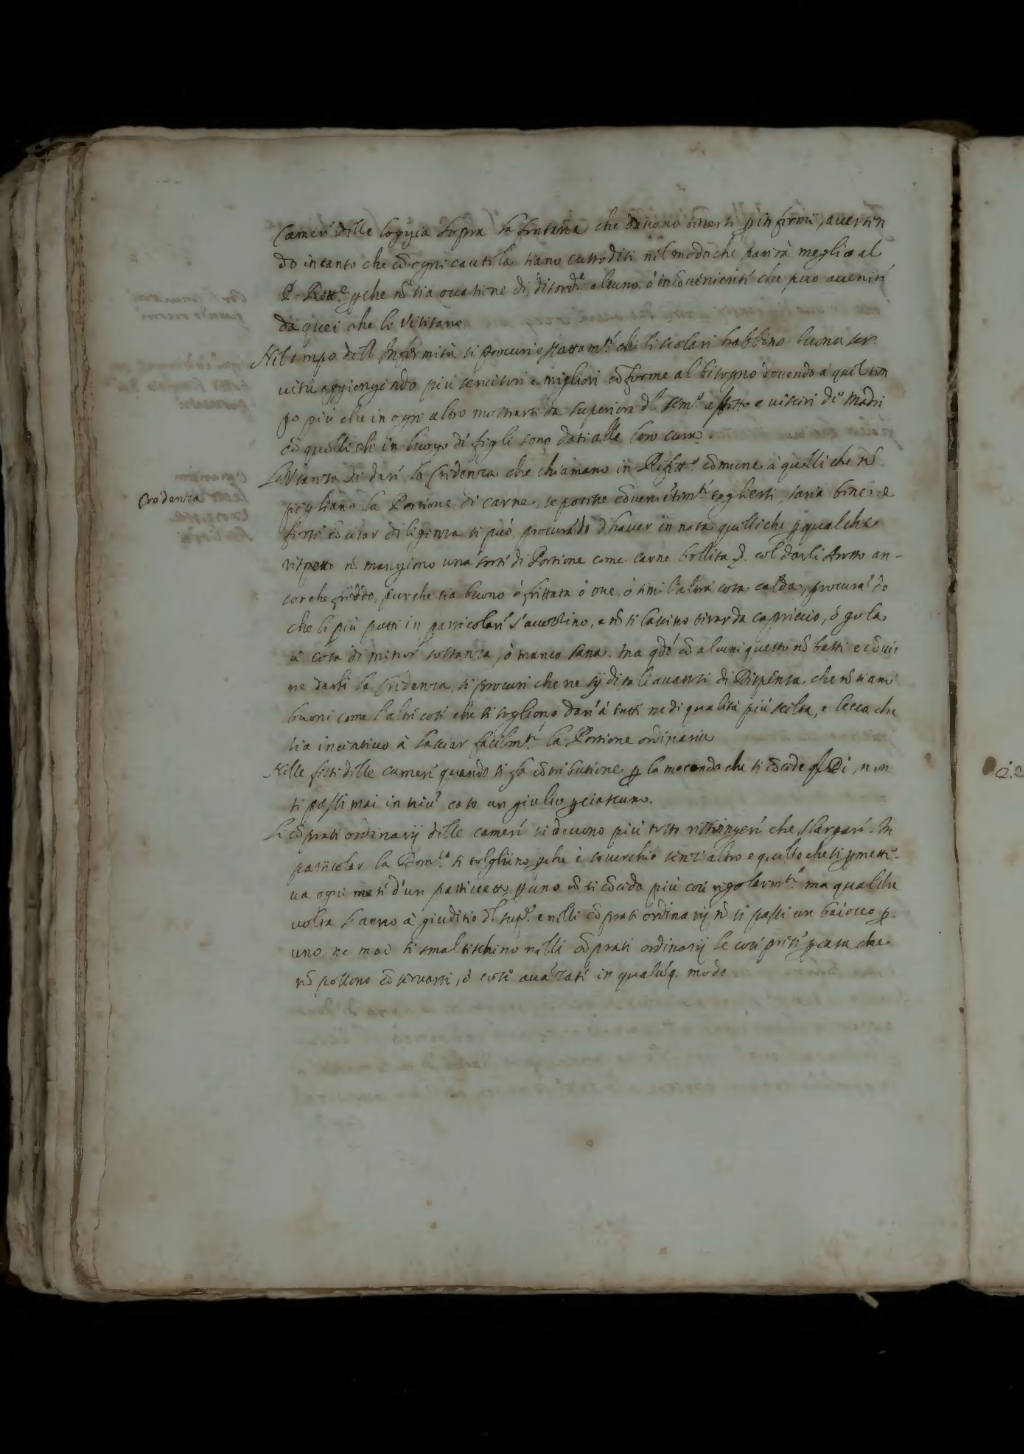 Camere delle loggia sopra la fontana che deviano tenersi p infermi, averten
do intanto che cõ ogni cautela siano custoditi nel modo che parirà meglio al
P. Rett.e pche nõ sia occasione di disord.e alcuno ò inconvenienti che può avenire
da quei che le visitano
Nel tempo dell Infermità si procuri esattam.te che li scolari habbino buona ser
vitù aggiongendo più servitori e migliori cõforme al bisogno dovendo à quel tem
po più che in ogni altro mostrarsi da superiori d.l sem.o affetto e viscere di Madri
cõ quelli che in luogo di figli sono dati alle loro cure
Credenza
L'Usanza di dare la Credenza che chiamano in Refett.o cõmune à quelli che nõ
pigliano la Portione di carne, se potesse cõvenientem.te togliersi, saria bene: e
forsi cõ usar diligenza si può, procurãdo d'haver in nota quelli che p qualche
rispetto nõ mangiono una sorte di Portione come carne bollita, col darli arosto an-
corche freddo, purche sia buono ò frittata ò ove, ò simil altra cosa calda, procurãdo
che li più putti in particolare s'avezzino, e nõ si lascino tirar da capriccio, ò gola
à cosa di minor sostanza, ò manco sana. ma qdõ cõ alcuni questo nõ basti e cõvie
ne darsi la Credenza, si procuri che ne sij di tali avanzi di Dispensa che nõ siano
buoni come l'altre cose che si sogliono dare à tutti ne di qualità più scelta, e lecca che
sia incentivo à lasciar facilm.te la Portione ordinaria
Nelle feste delle camere quando si fa cõtributione p la merenda che si cõcede qsti Di, non
si passi mai in niun caso un giulio p ciascuno.
Li cõprati ordinarij delle camere si devono più tosto ristringere che slargare. In
particolar la Dom.ca si tolghino, pche è soverchio senz'altro e quello che si pmette-
va ogni mese d'un pasticcetto p uno nõ si cõceda più così regolarm.te ma qualche
volta l'anno à giuditio d.l sup.e e nelli cõprati ordinarij nõ si passi un baiocco p
uno, ne mai si smaltischino nelli cõprati ordinarij le cose prese p casa che
nõ possono cõservarsi, ò cose avãzate in qualũq. modo